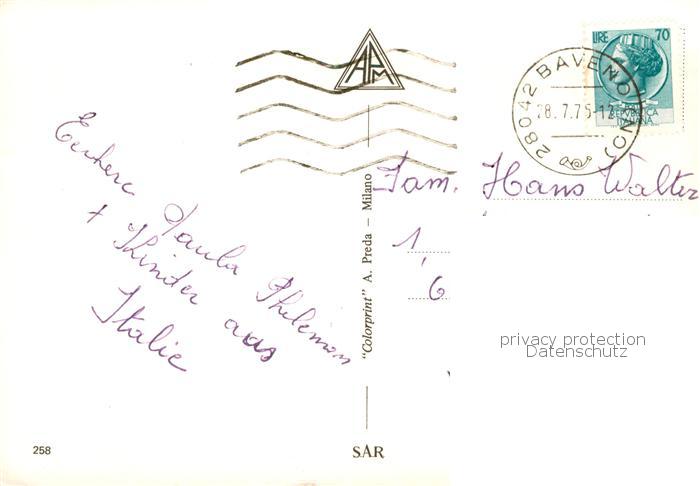 LIRE 70
28042 BAVENO (NO)
28.7.75-12
REPVBBLICA
ITALIANA
APM
Paula Philemon
+ Kinder aus
Italie
Fam. Hans Walter
1,
6
"Colorprint" A. Preda – Milano
privacy protection
Datenschutz
258
S.A.R